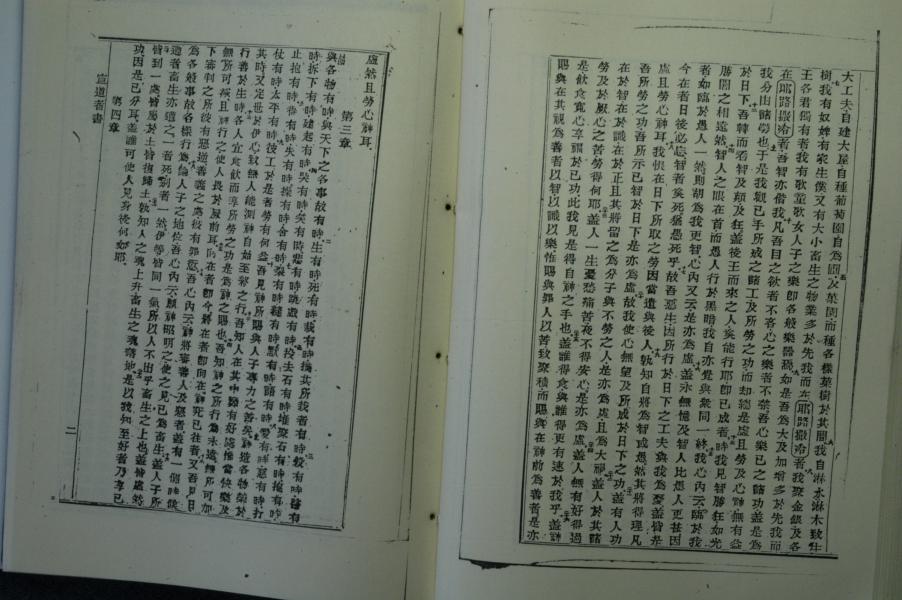 大工夫自建大屋自種葡萄園自為園及菓園而種各樣菓樹於其間我自淋水淋木致生
樹我有奴婢有家生僕又有大小畜生之物業多於先我而在耶路撒冷者我聚金銀及各
王各君獨有者我有歌童歌女人子之樂即各般樂器
在耶路撒冷者吾智亦偕我凡吾目之欲者不吝心之樂者不禁吾心樂己之諸功蓋是為
我分由諸勞也于是我觀已手所成之諸工及所勞之功而却總是虛且勞及心神無有益
於日下吾轉而看智及顛及狂蓋後王而來之人奚能行耶即已成者時我見智勝狂如光
勝闇之相遠然智人之眼在首而愚人行於黑暗我自亦覺與眾同一
者如臨於愚人一然則胡為我更智心內又云是亦為虛蓋永無憶及智人比愚人更甚因
今在者日後必忘智者奚死猶愚死乎故吾惡生因所行於日下之工夫與我為憂蓋皆是
虛然且勞心神耳我恨在日下所取之勞因當遺與後人孰知自將為智或愚然其將得理凡
吾所勞之功吾所示己智於日下是亦為虛故我使心無望及所成於日下之功蓋有人功
在於智在於識在於正且其將留之為分子與不勞之人是亦為虛且為大禍蓋人於其諸
勞及於厭心之苦勞得何耶蓋人一生憂愁痛苦夜不得安心是亦為虛蓋人無有好得過
是飲食寬心享福於己功此我見是得自神之手也蓋誰得食與誰得更有速於我乎蓋神
賜與在其視為善者以智以識以樂惟賜與罪人以苦致聚積而賜與在神前為善者是亦
虛然且勞心神耳
第三章
與各物有時與天下之各事故有時生有時死有時栽有時拔其所栽者有時殺有時醫有
時拆下有時建起有時哭有時笑有時悲有時跳戲有時投去石有時堆聚石有時抱有時
止抱有時得有時失有時守有時舍有時裂有時縫有時默有時語有時愛有時惡有時打
仗有時太平有時彼工於是者勞有何益吾見神所賜與人子專力之善矣神造各物樂於
其時又定世於伊心致無人能測神自始至終之行吾知人在其中頗有好處惟當快樂及
行善於生時各人宜食飲而享所勞之功是為神之賜也吾知神之所行為永遠無所可加
無所可減且神行之使人畏於厥前耳向在者即今將在者即向在神究已往者又吾見日
下審判之所彼有惡道善義之處彼有罪惡吾心內云神將審善人及惡者蓋有一個時候
為各般事故各樣行為倫人子之地位吾心內云願神昭明之使之見已為畜生蓋人子所
遭者畜生亦遭之一者死别者一然伊等皆同一氣所以人不出乎畜生之上也蓋皆虛然
皆到一處皆屬於土皆復歸土孰知人之魂上升畜生之魂落地是以我知至好者乃享己
功因是已分耳蓋誰可使人見身後何如耶
第四章
宣道者書
二